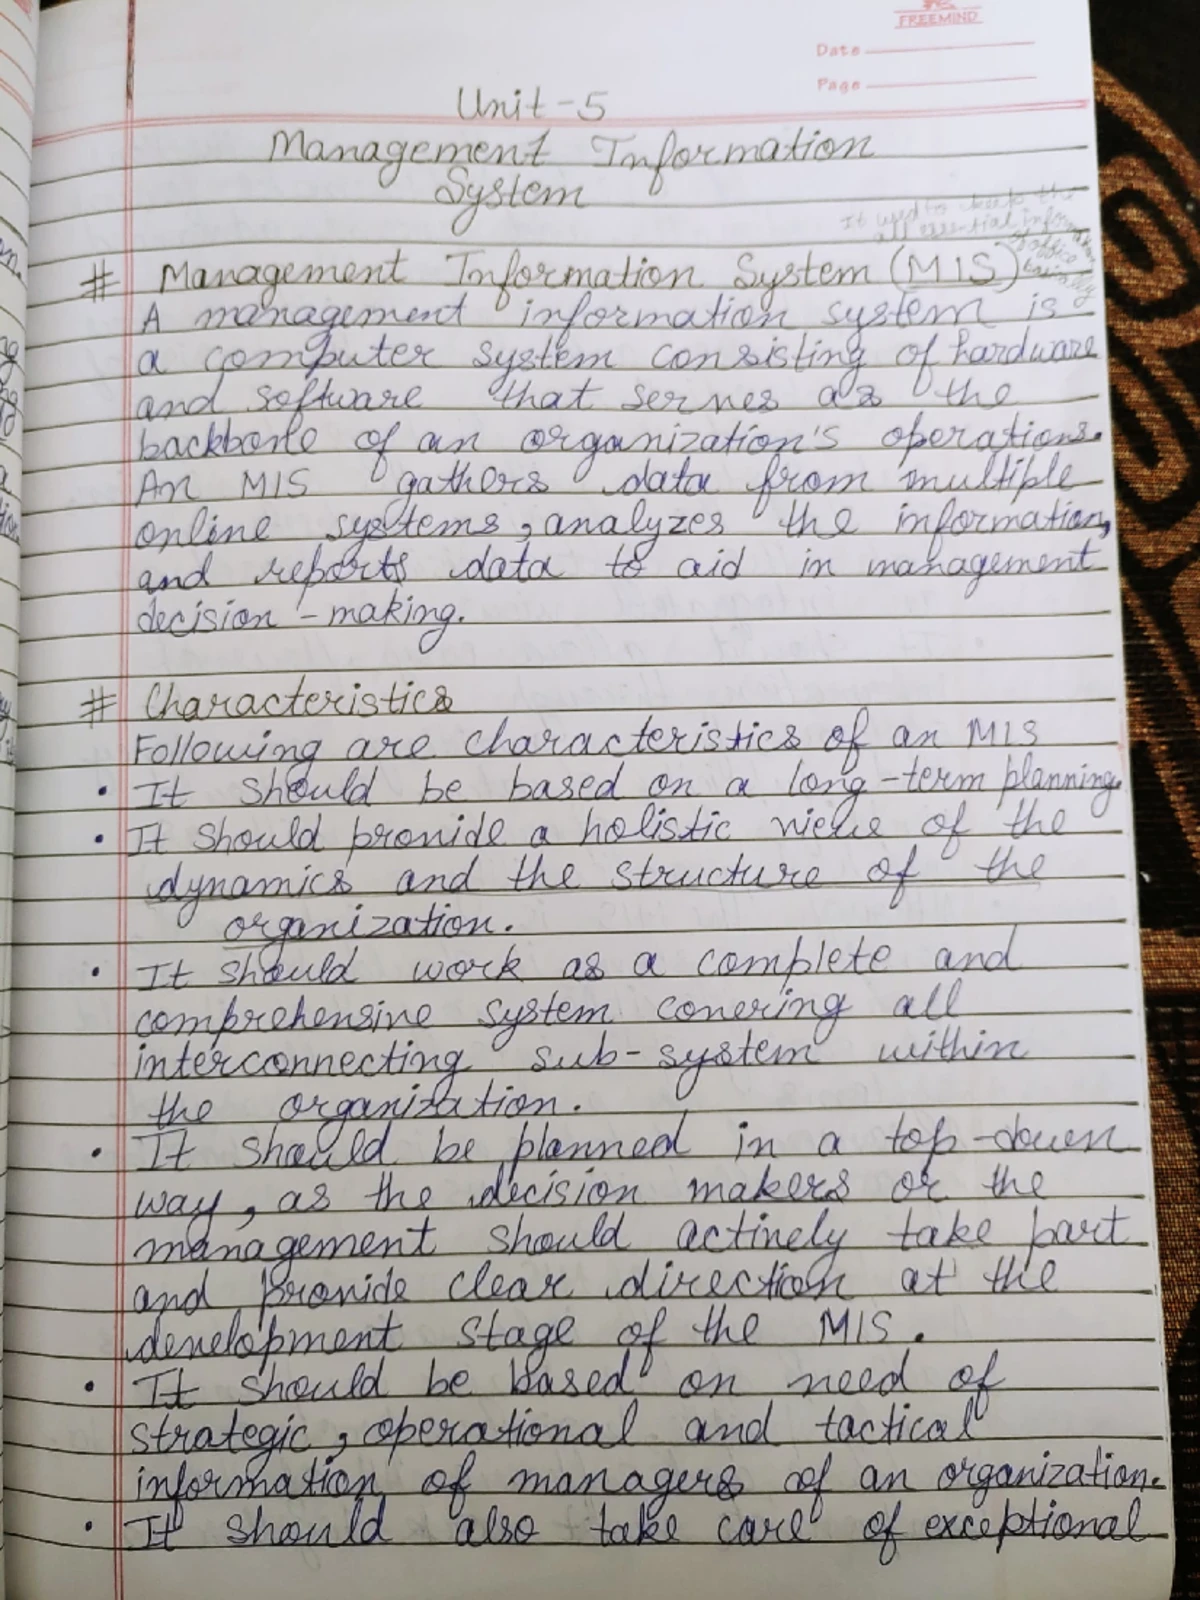 FREEMIND
Date
Page
Unit-5
Management Information
System
It used to keep the
all essential inform
# Management Information System (MIS)
A management information system is
a computer system consisting of hardware
and software that serves as the
backbone of an organization's operations.
An MIS gathers data from multiple
online systems, analyzes the information,
and reports data to aid in management
decision-making.
# Characteristics
Following are characteristics of an MIS
• It should be based on a long-term planning.
• It should provide a holistic view of the
dynamics and the structure of the
organization.
• It should work as a complete and
comprehensive system covering all
interconnecting sub-system within
the organization.
• It should be planned in a top-down
way, as the decision makers or the
management should actively take part
and provide clear direction at the
development stage of the MIS.
• It should be based on need of
strategic, operational and tactical
information of managers of an organization.
• It should also take care of exceptional